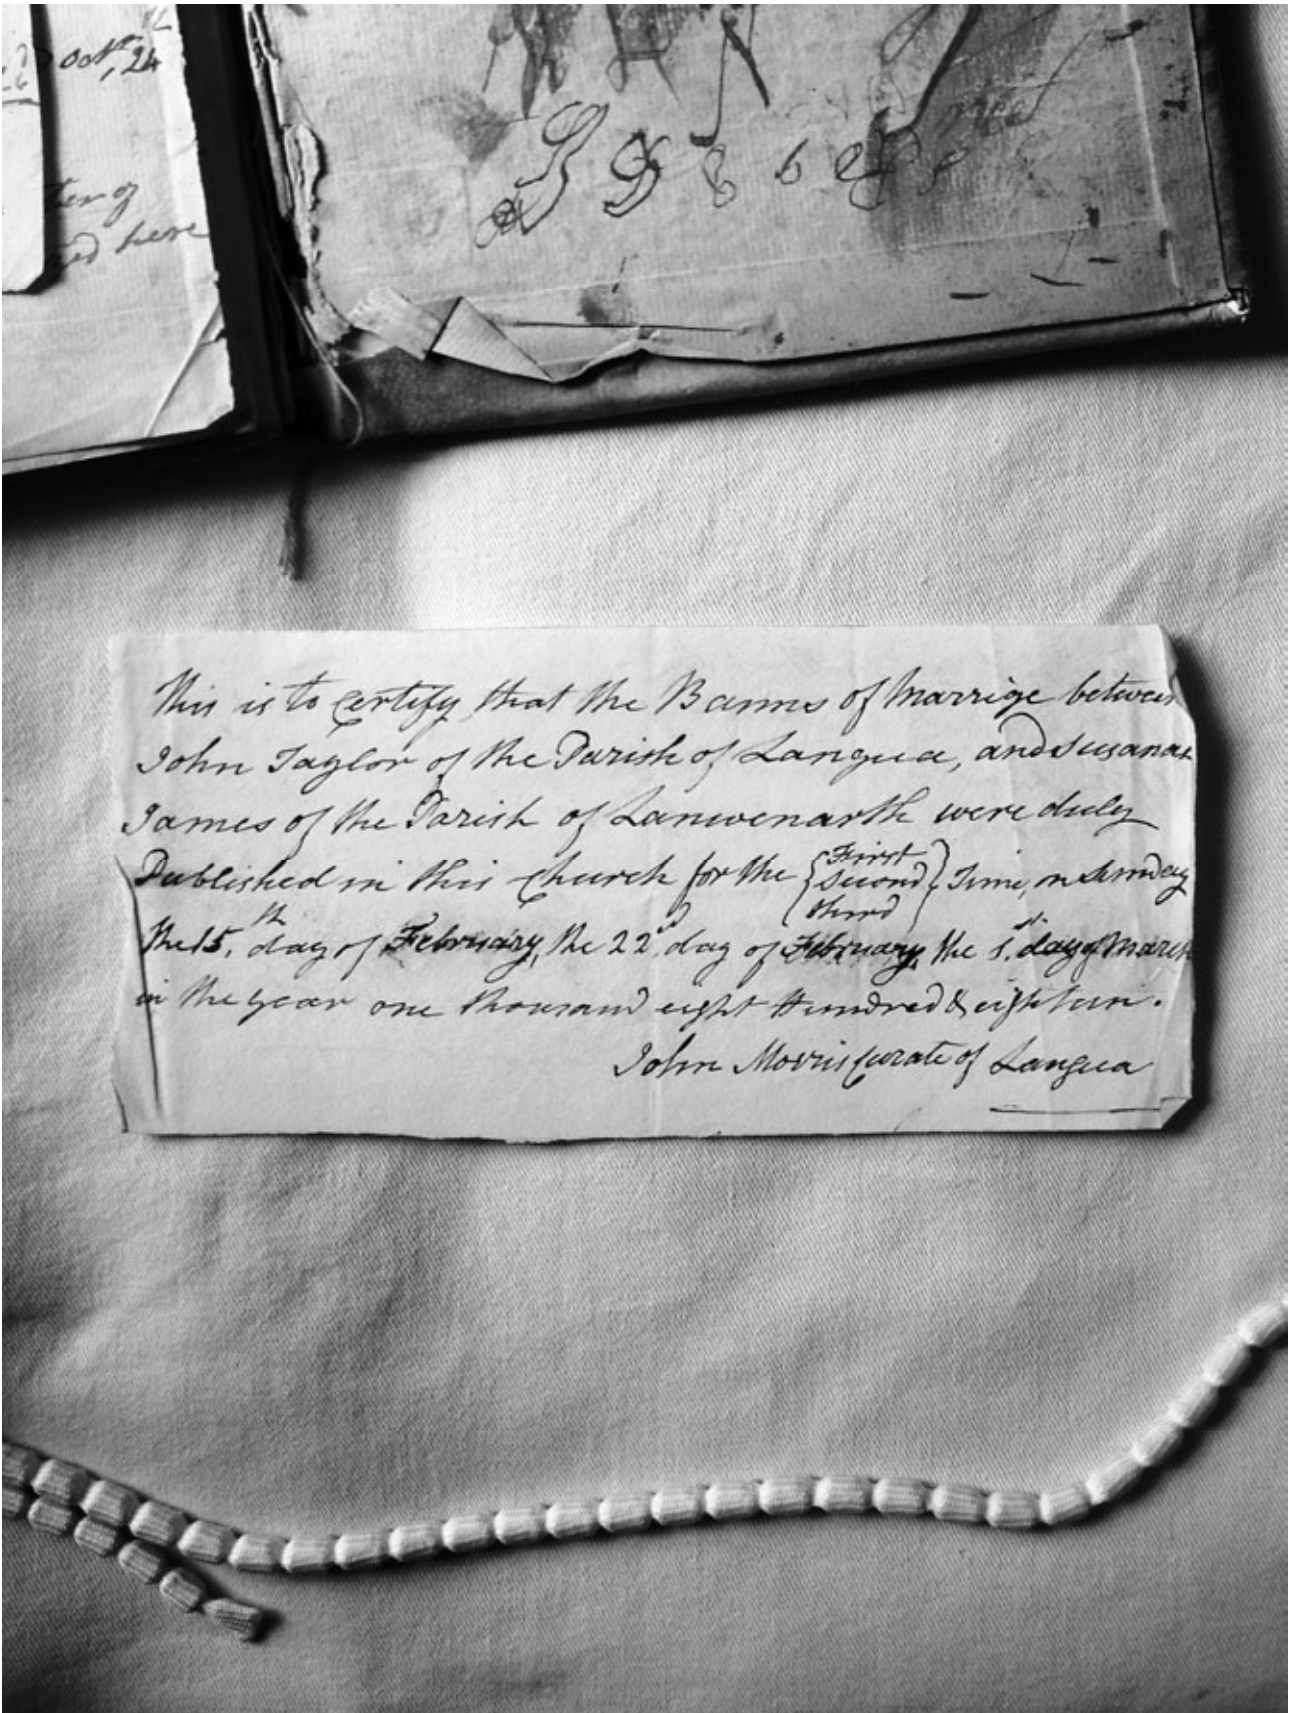 Octr, 24
ter of
ed here
This is to certify that the Banns of Marrige between
John Taylor of the Parish of Langua, and Susanah
James of the Parish of Lanwenarth were duly
Published in this Church for the { First Second Third } Time, on Sunday
the 15.th day of February, the 22nd day of February, the 1.st day of March
in the year one thousand eight Hundred & eighteen.
John Morris Curate of Langua